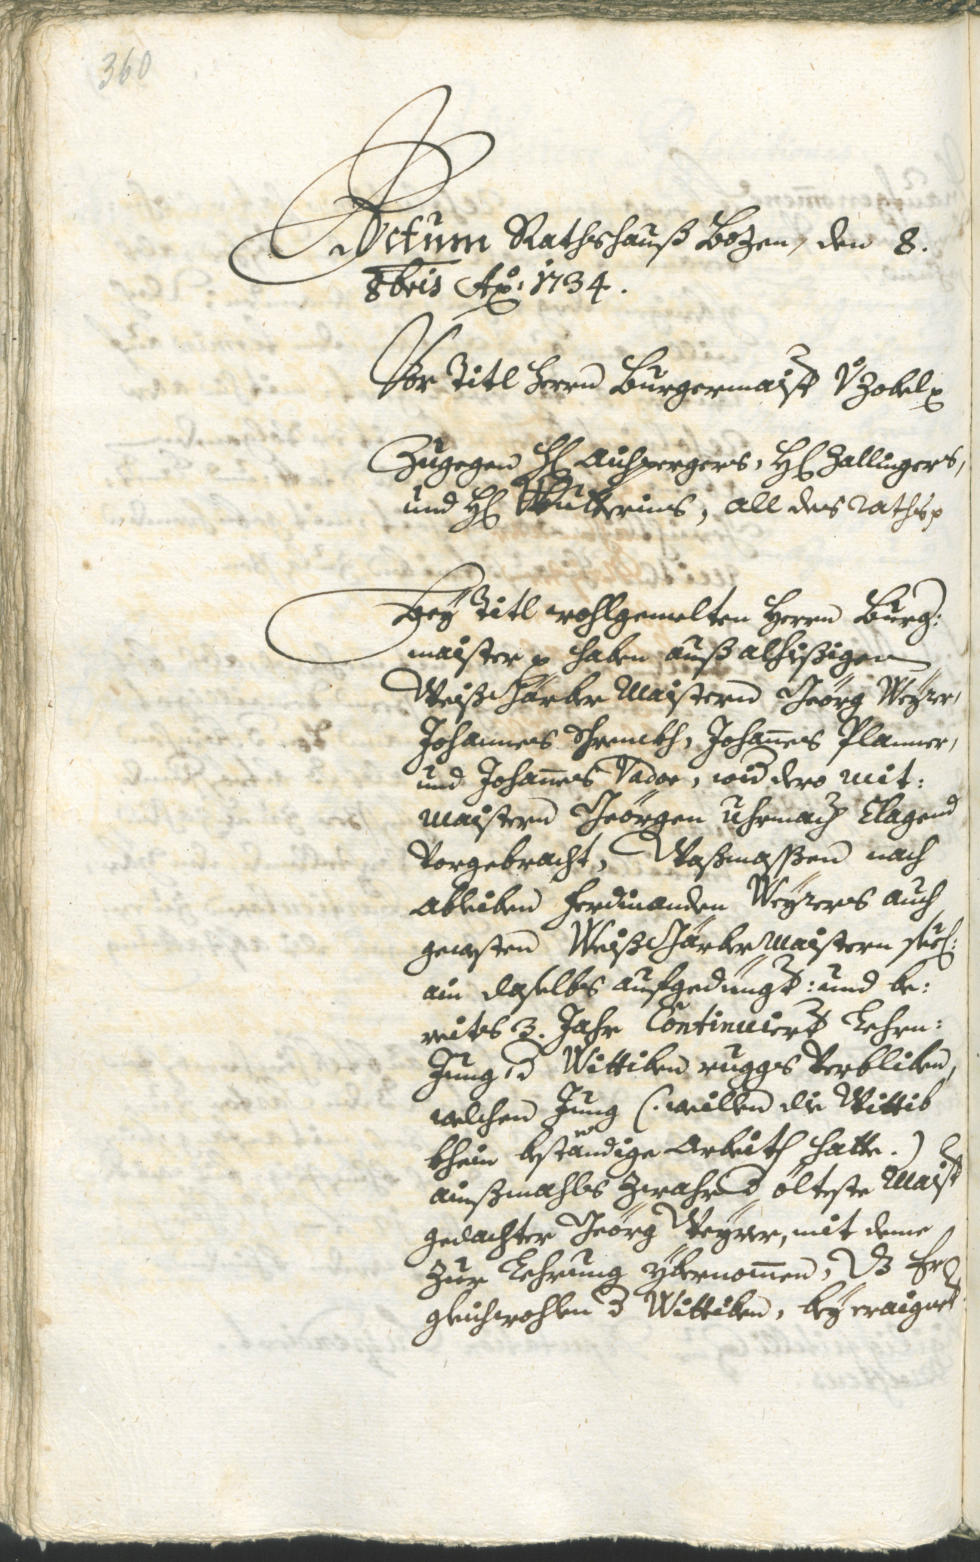 360
Actum Rathshauß Bozen, den 8.
8bris Ao: 1734.
Vor Titl Herrn Burgermaister v Zobel
Zugegen H: Aufpergers, H: Zallingers,
und H:, all des raths
Bey Titl wohlgemelten Herrn Burg:
maister haben auß alhißigen
Weiß Färber Maistern Jeörg Weyrer,
Johannes, Johannes Planner,
und Johannes Vador, wider dero mit:
maistern Jeörgen Uhrmach Clagend
Vorgebracht, Waßmassen nach
ableiben Ferdinanden Weyrers auch
gewesten Weiß Färber Maistern seel:
ain daselbs aufgedüngt: und be:
reits 3. Jahr Continuiert Lehrn:
Jung d Wittiben ruggs Verbliben,
welchen Jung (: weillen die Wittib
khein beständige Arbeith hatte.)
ainßmahls zwahr d ölteste Maister
gedachter Jeörg Weyrer, mit deme
zur Lehrnung ybernomen, dz Er
gleichwohlen d Wittiben, bey eraignet